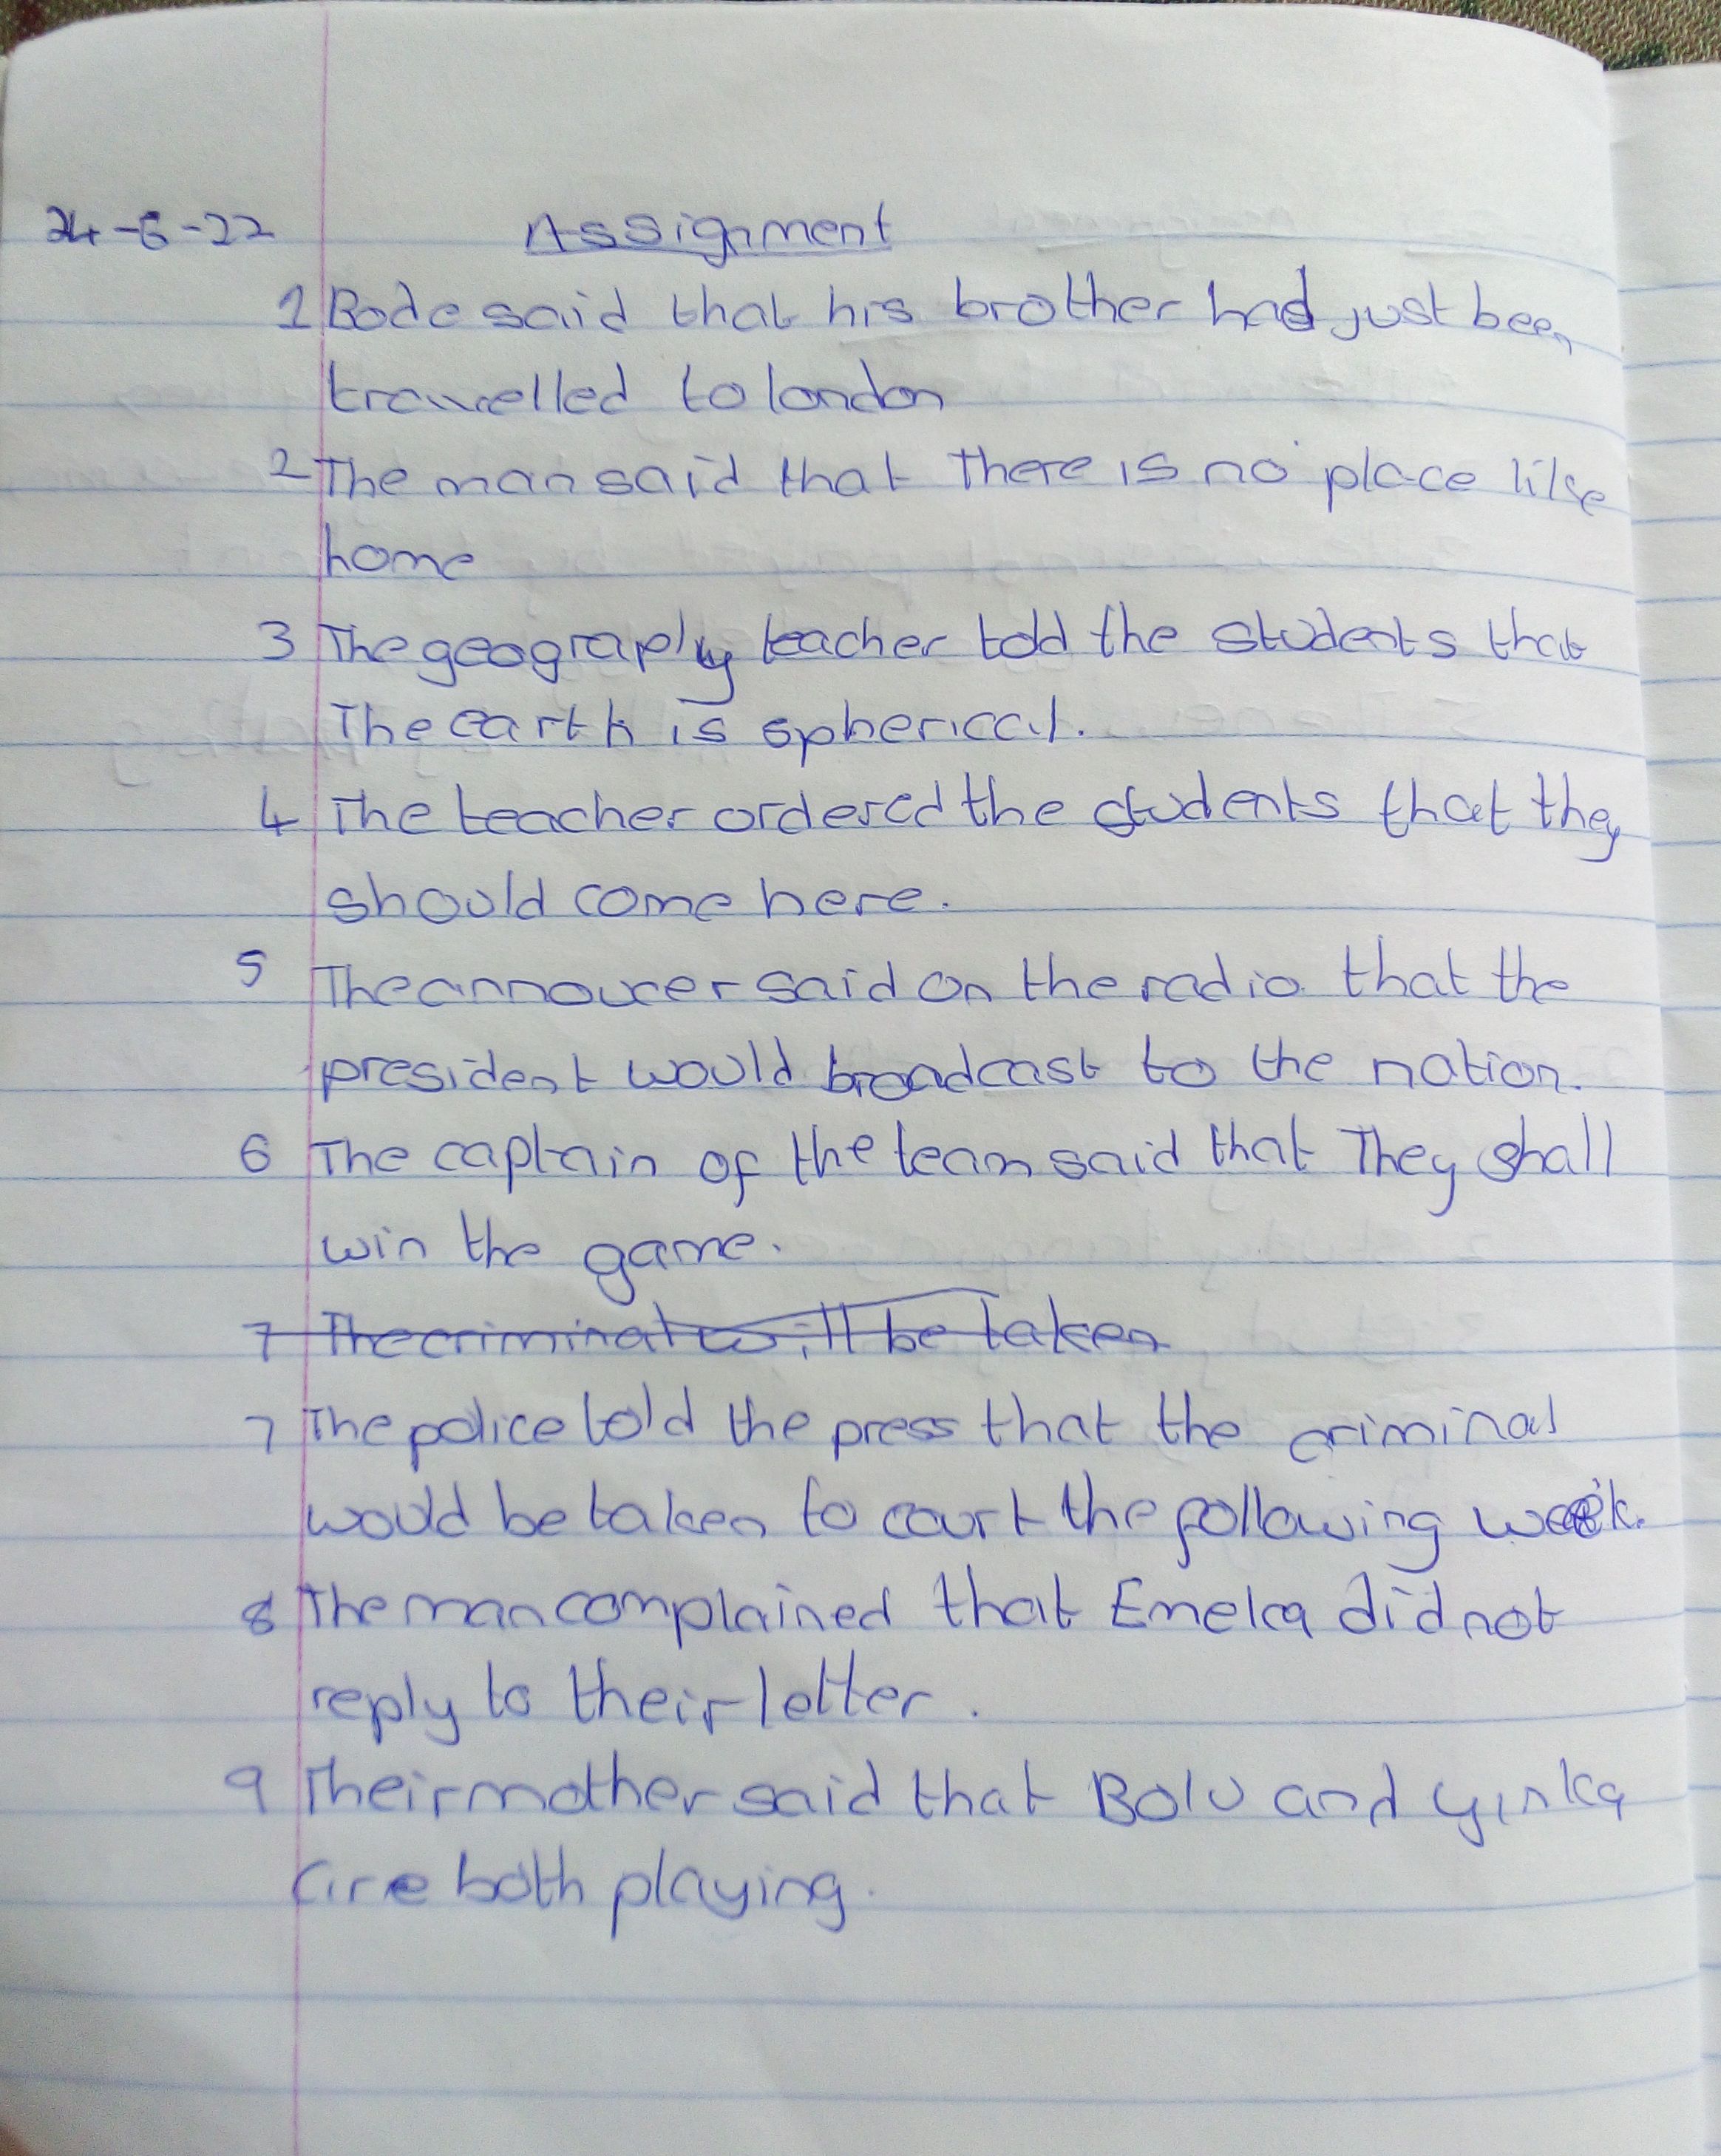 24-6-22 Assignment
1 Bode said that his brother had just been
travelled to london
2 The man said that There is no place like
home
3 The geography teacher told the students that
The earth is spherical.
4 The teacher ordered the students that they
should come here.
5 The annoucer said on the radio that the
president would broadcast to the nation.
6 The captain of the team said that They shall
win the game.
7 The criminal will be taken
7 The police told the press that the criminal
would be taken to court the following week.
8 The man complained that Emeka did not
reply to their letter.
9 Their mother said that Bolu and yinka
are both playing.